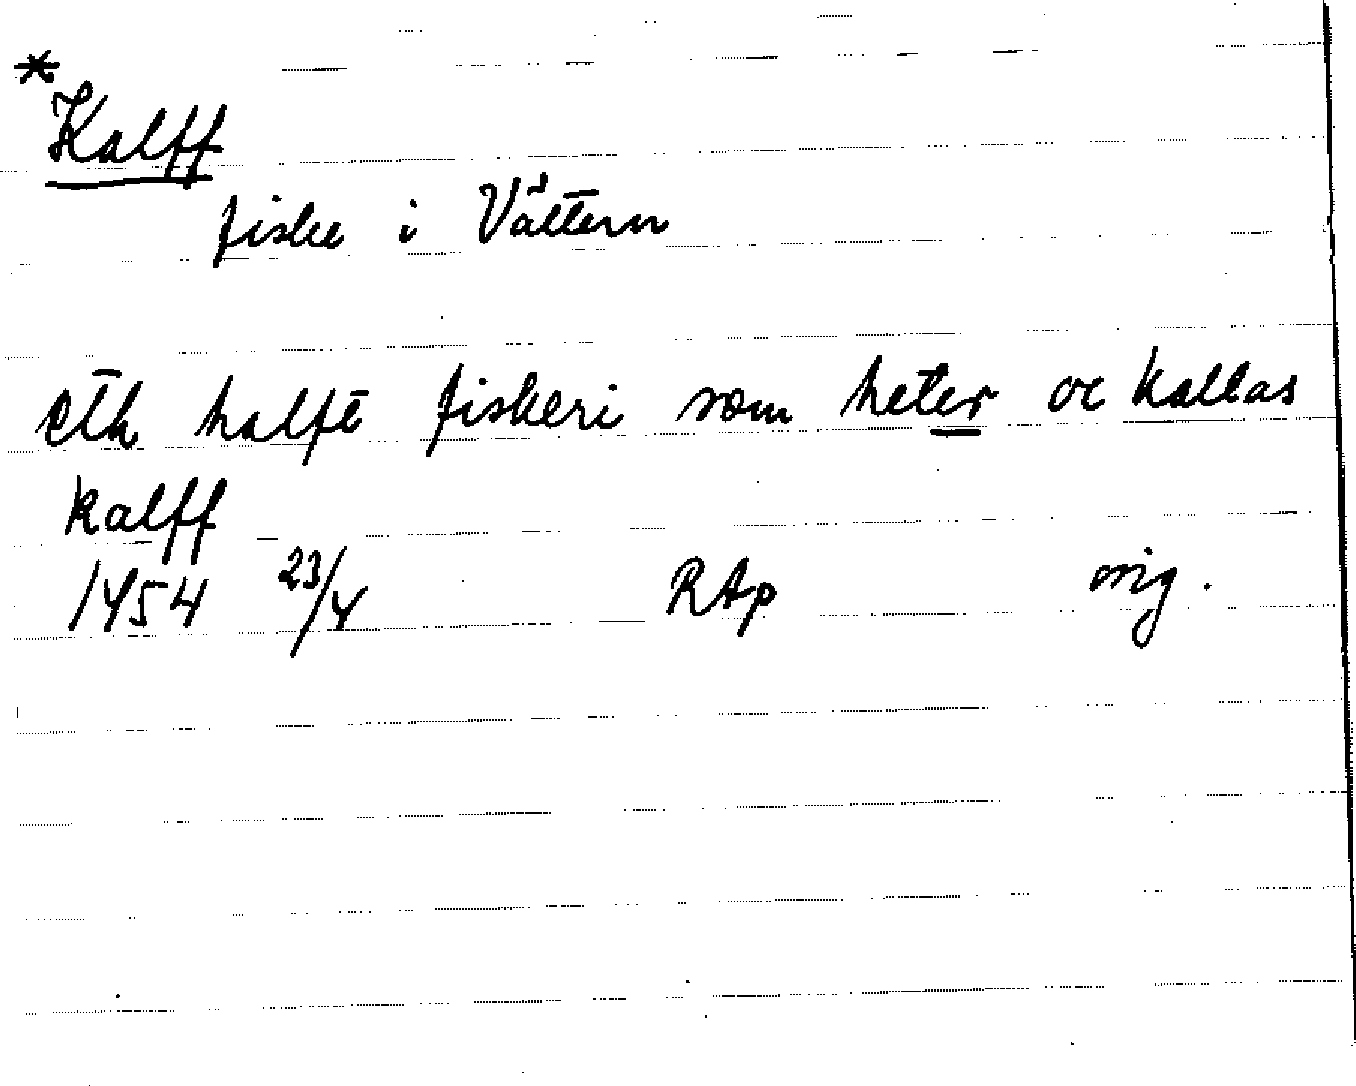 *
Kalff
fiske i Vättern
eth halft fiskeri som heter oc kallas
kalff
1454 23/4 RAp orig.